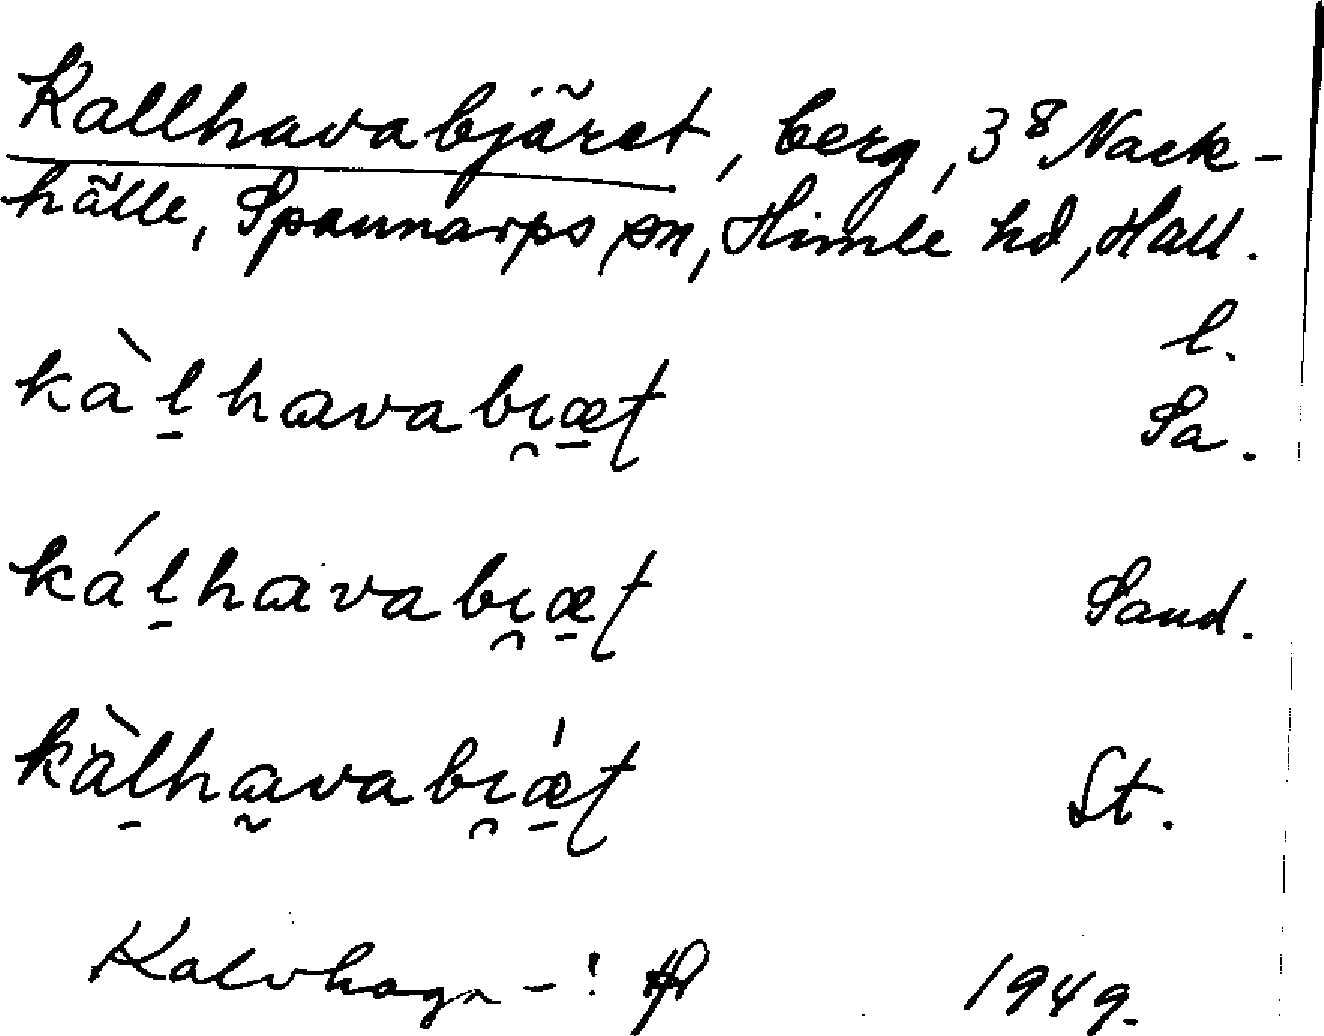 Kallhavabjäret, berg, 3⁸ Nack-
hälle, Spannarps sn, Himle hd, Hall.
l.
kàl̠havabı̯æ̠t Sa.
kál̠havabı̯æ̠t Sand.
kàl̠ha̰vabı̯ǽ̠t St.
Kalvhaga-!
1949.